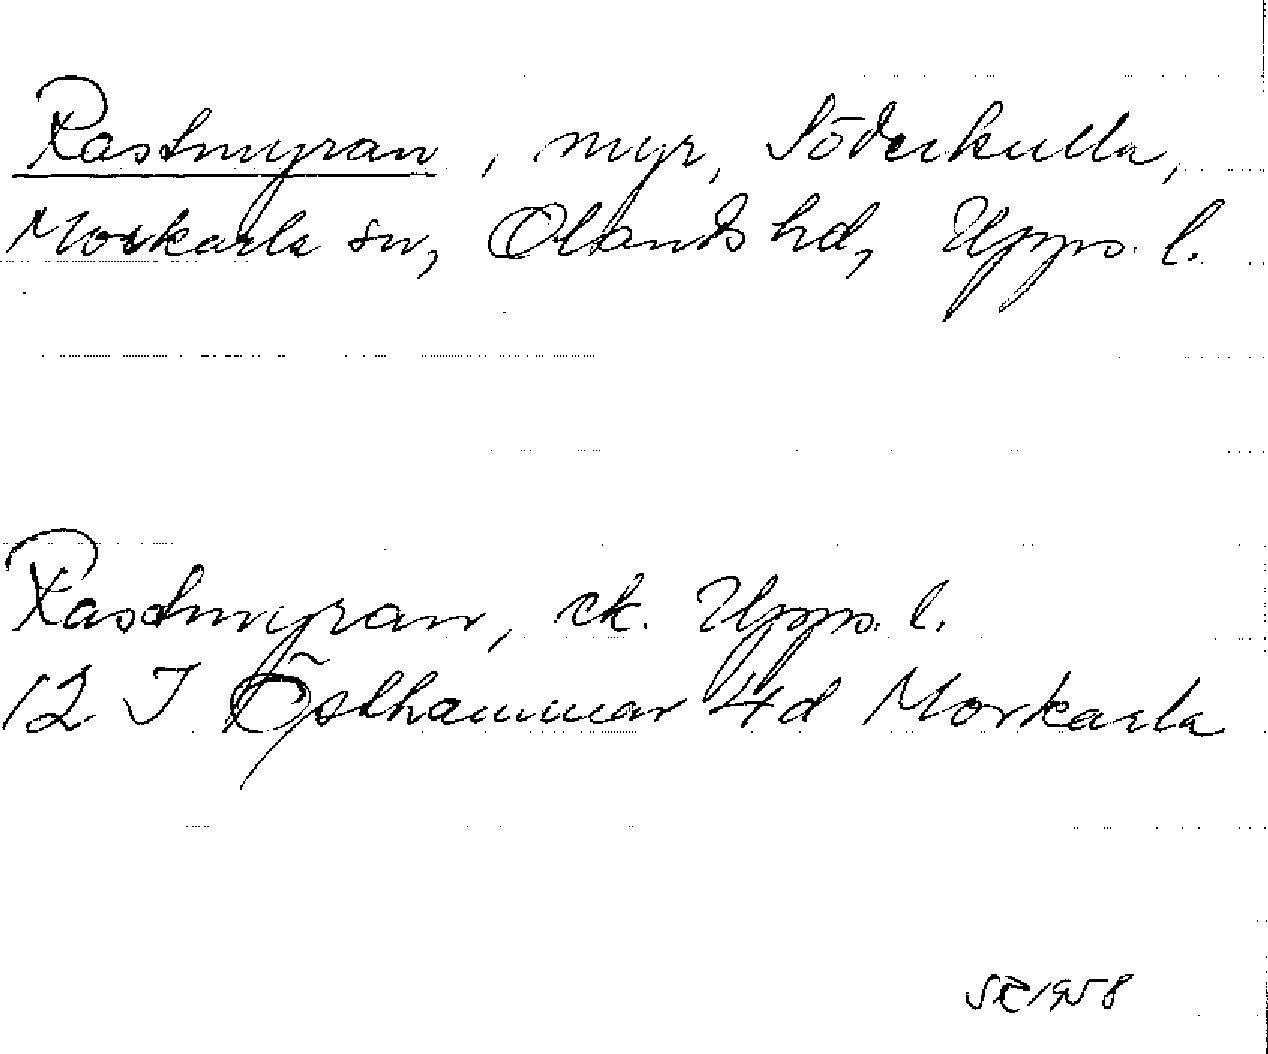 Rastmyran, myr, Söderkulla,
Morkarla sn, Olands hd, Upps. l.
Rastmyran, ek. Upps. l.
12 I Östhammar 4d Morkarla
1958